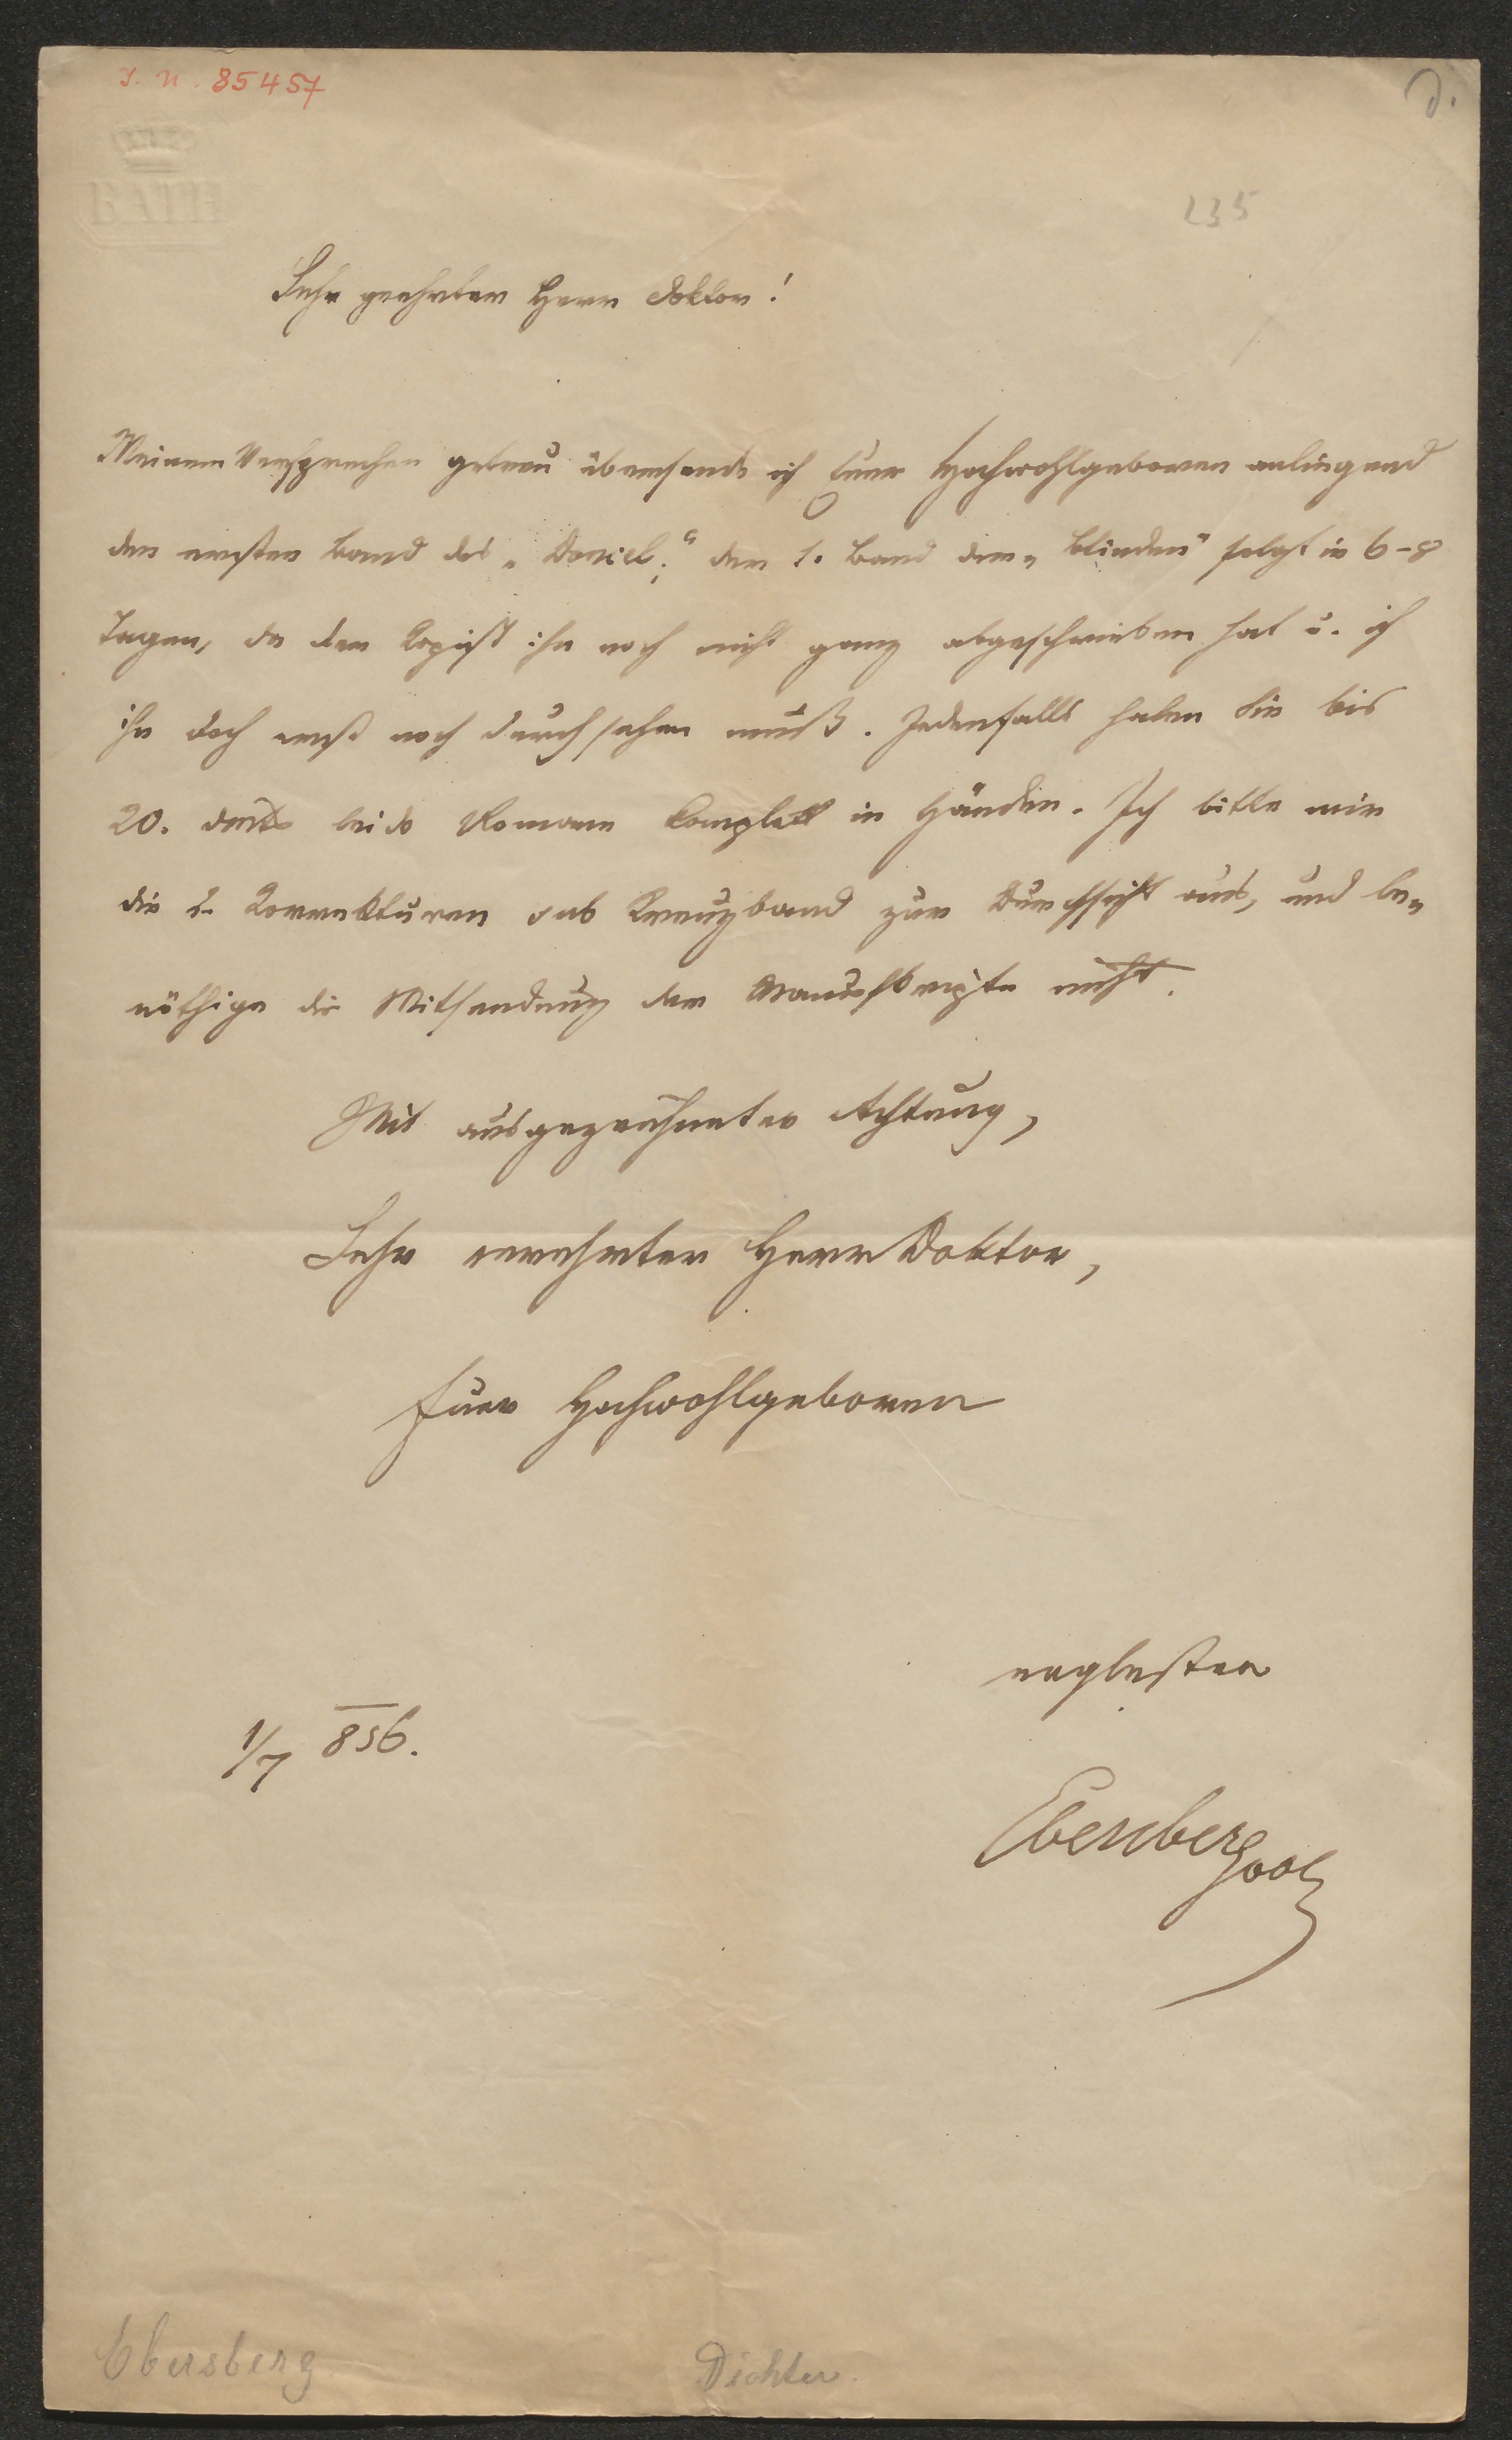 I. N. 85457
D.
BATH
235
Sehr geehrter Herr Doktor!
Meinem Versprechen getreu übersende ich Euer Hochwohlgeboren anliegend
den ersten Band des „Daniel;“ der 1. Band der „Blinden“ folgt in 6-8
Tagen, da der Copist ihn noch nicht ganz abgeschrieben hat u. ich
ihn doch erst noch durchsehen muß. Jedenfalls haben Sie bis
20. beide Romane komplett in Händen. Ich bitte mir
die 2. Korrekturen sub Kreuzband zur Durchsicht aus, und be-
nöthige die Mitsendung der Manuskripte nicht.
Mit ausgezeichneter Achtung,
Sehr verehrter Herr Doktor,
Euer Hochwohlgeboren
ergebster
1/7 856.
Ebersberg
Ebersberg
Dichter.